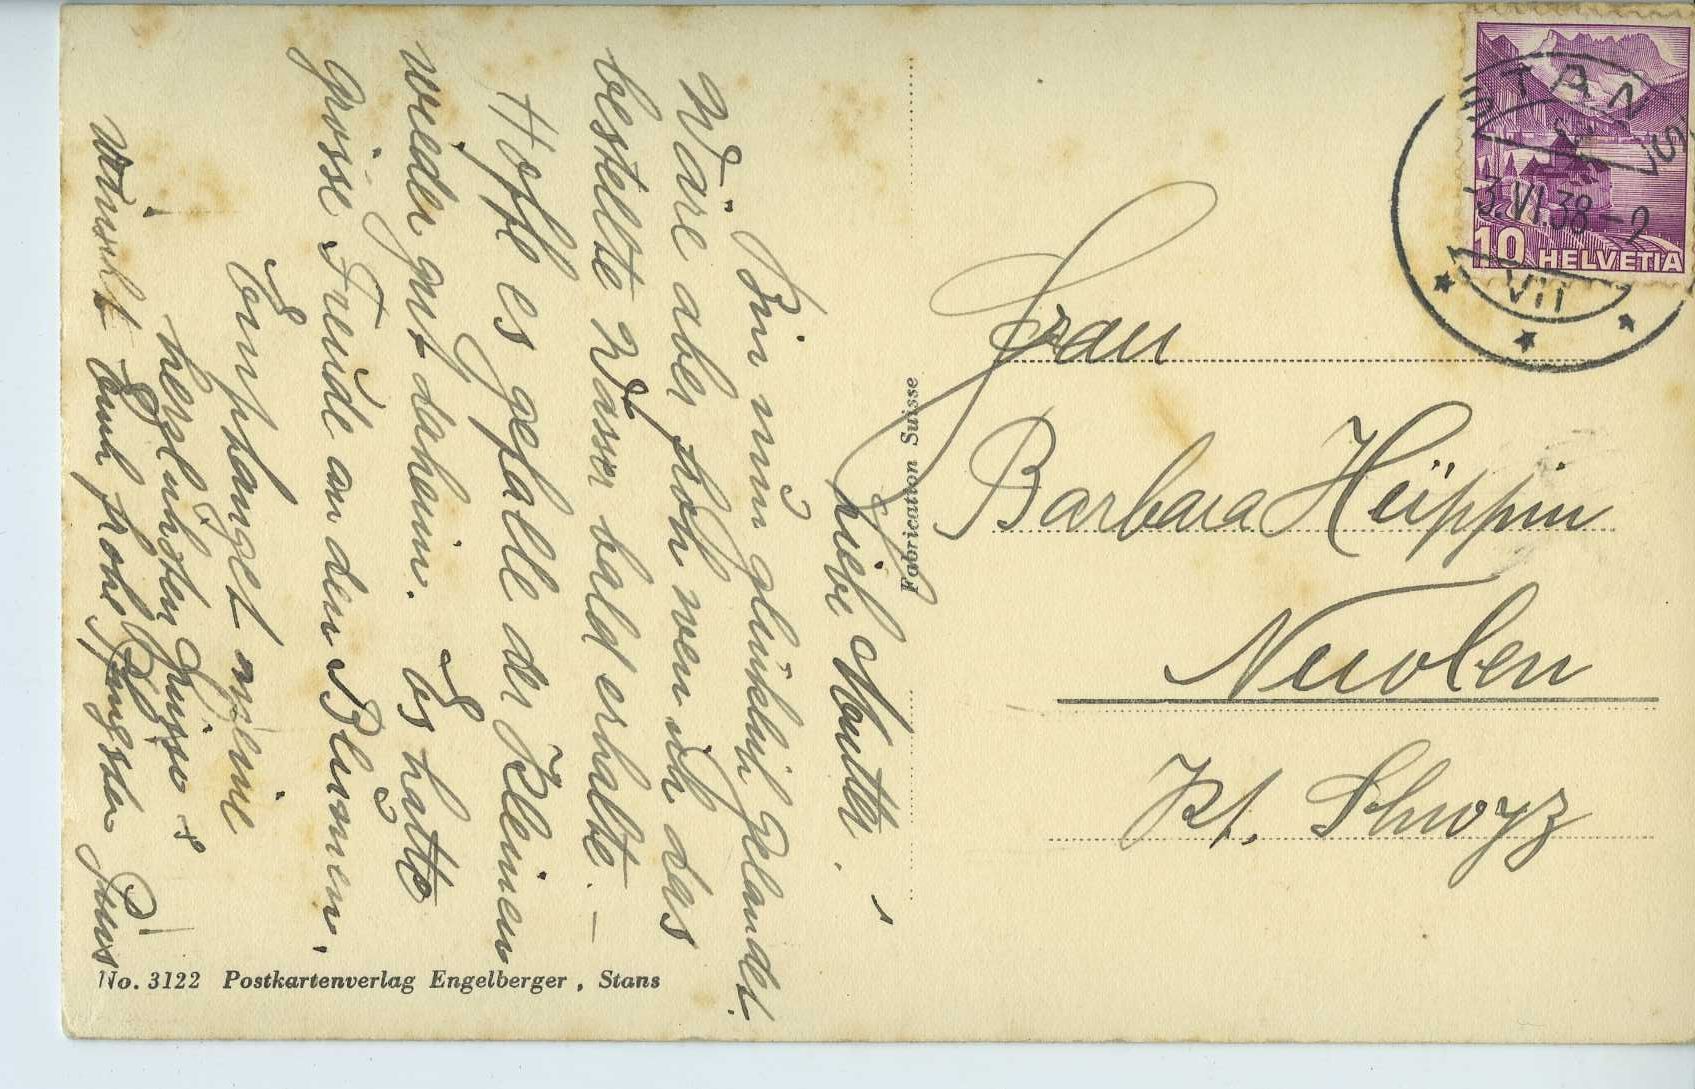 Liebe Mutter!
Bin nun glücklich gelandet.
Wäre aber froh wen ich das
bestellte Wasser bald erhalte. –
Hoffe es gefalle der Kleinen
wieder gut daheim. Es hatte
grosse Freude an den Blumen.
Empfanget meine
herzlichsten Grüsse +
wünscht Euch frohe Pfingsten
Pius
Fabrication Suisse
No. 3122 Postkartenverlag Engelberger, Stans
STANS
STANS
3.VI.38–2
VII
10 HELVETIA
Frau
Barbara Hüppin
Nuolen
Kt. Schwyz